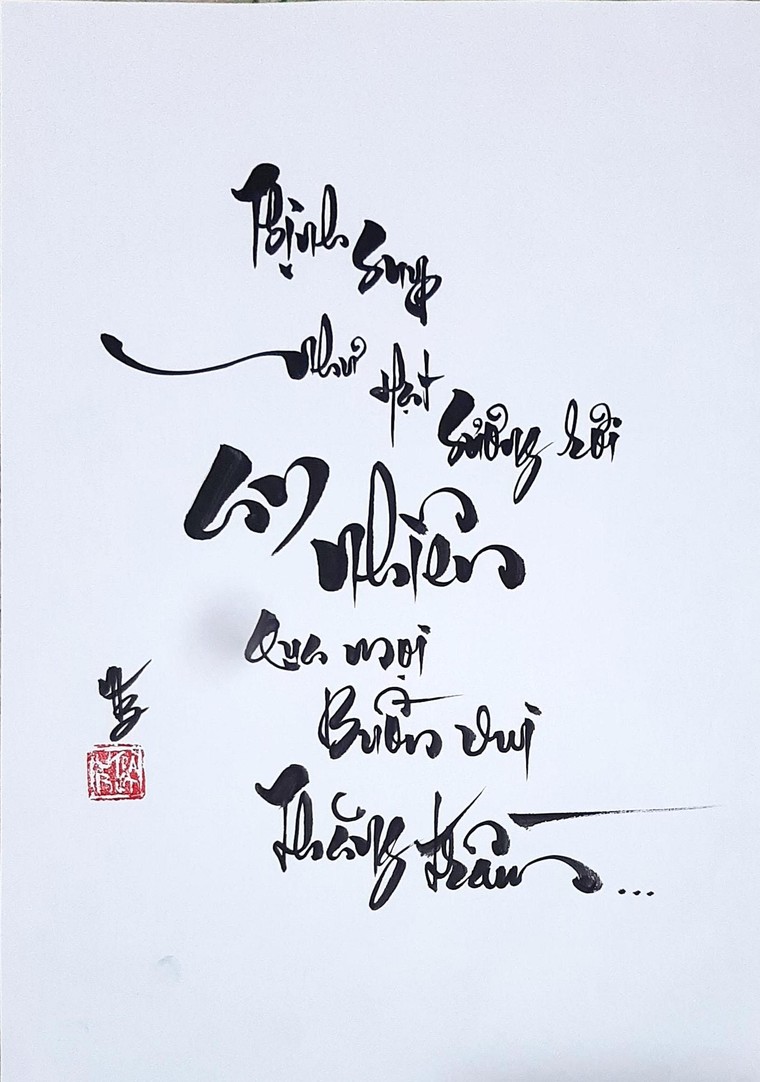 Thịnh Suy
Như Hạt
Sương rơi
An
Nhiên
Qua mọi
Buồn vui
Thăng trầm...